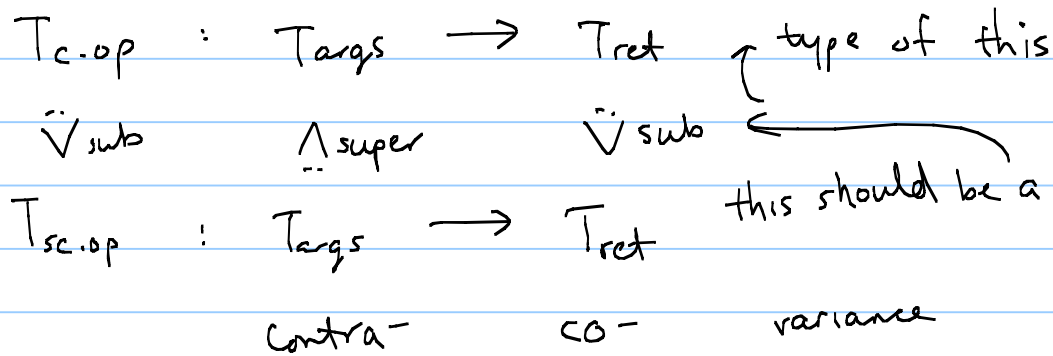 T_{c.op} : T_{args} → T_{ret} type of this
⋁̈ sub ⋀̤ super ⋁̈ sub
this should be a
T_{sc.op} : T_{args} → T_{ret}
contra- co- variance